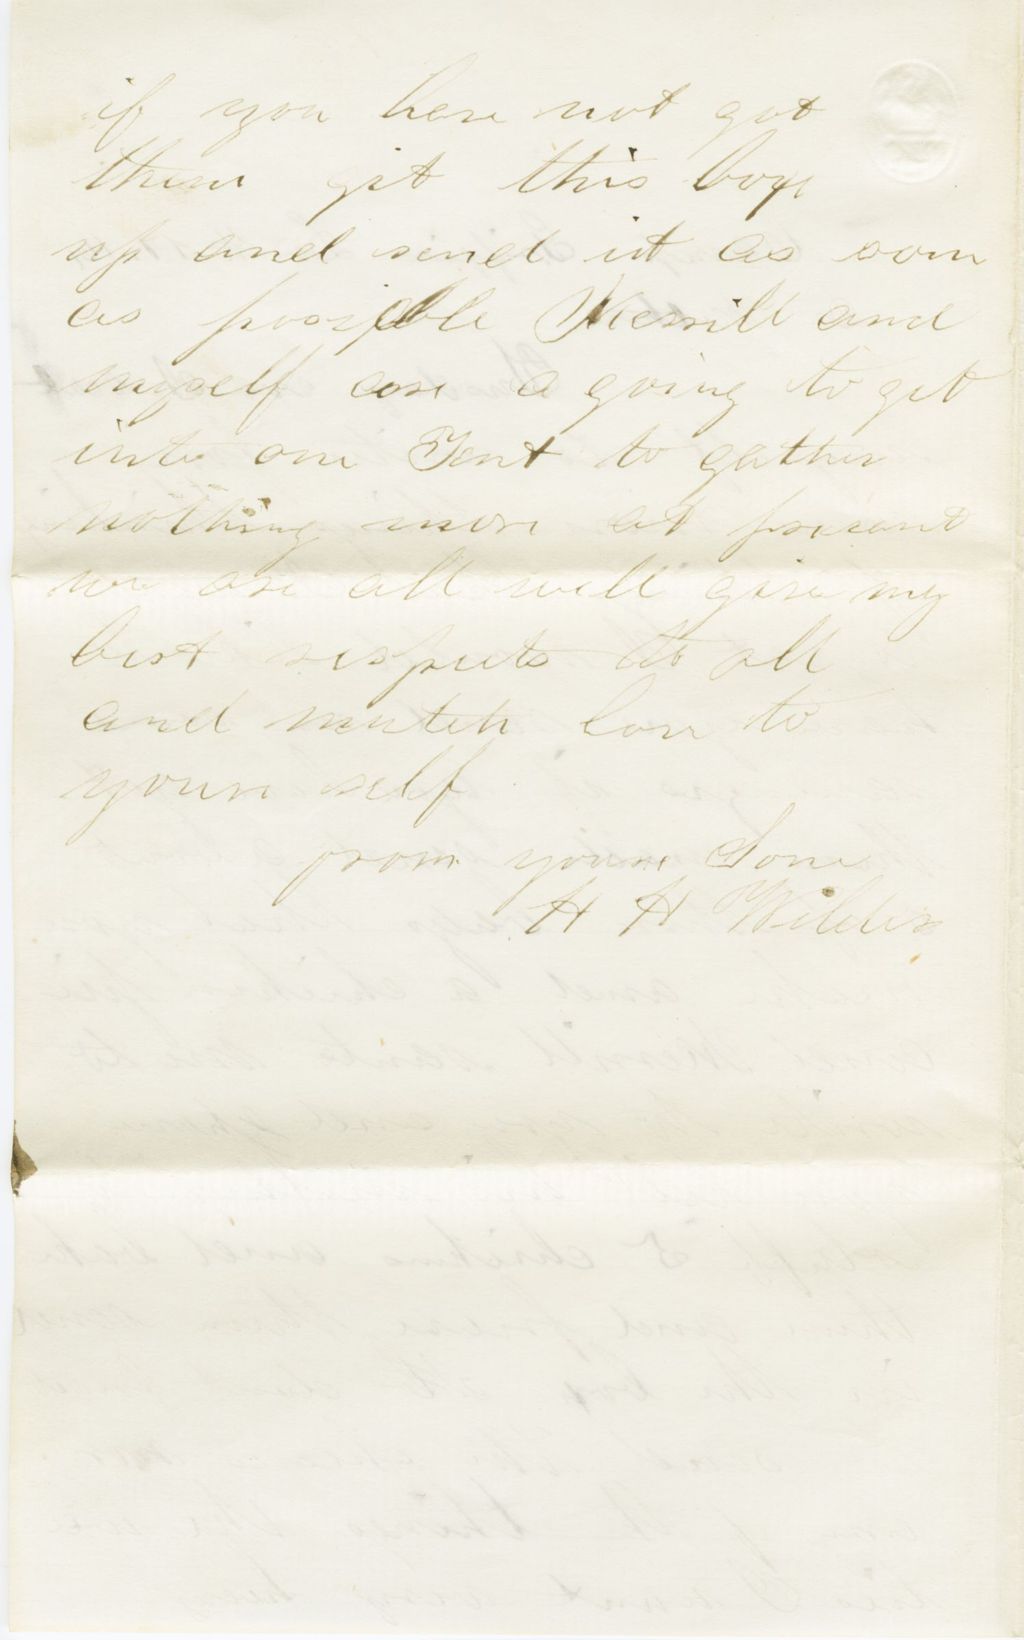 if you have not got
them git this box
up and send it as soon
as possible Merrill and
myself are a going to get
into one Tent to gather
nothing more at presant
we are all well give my
best respects to all
and mutch love to
youre self
from youre Sone
H H Wilder